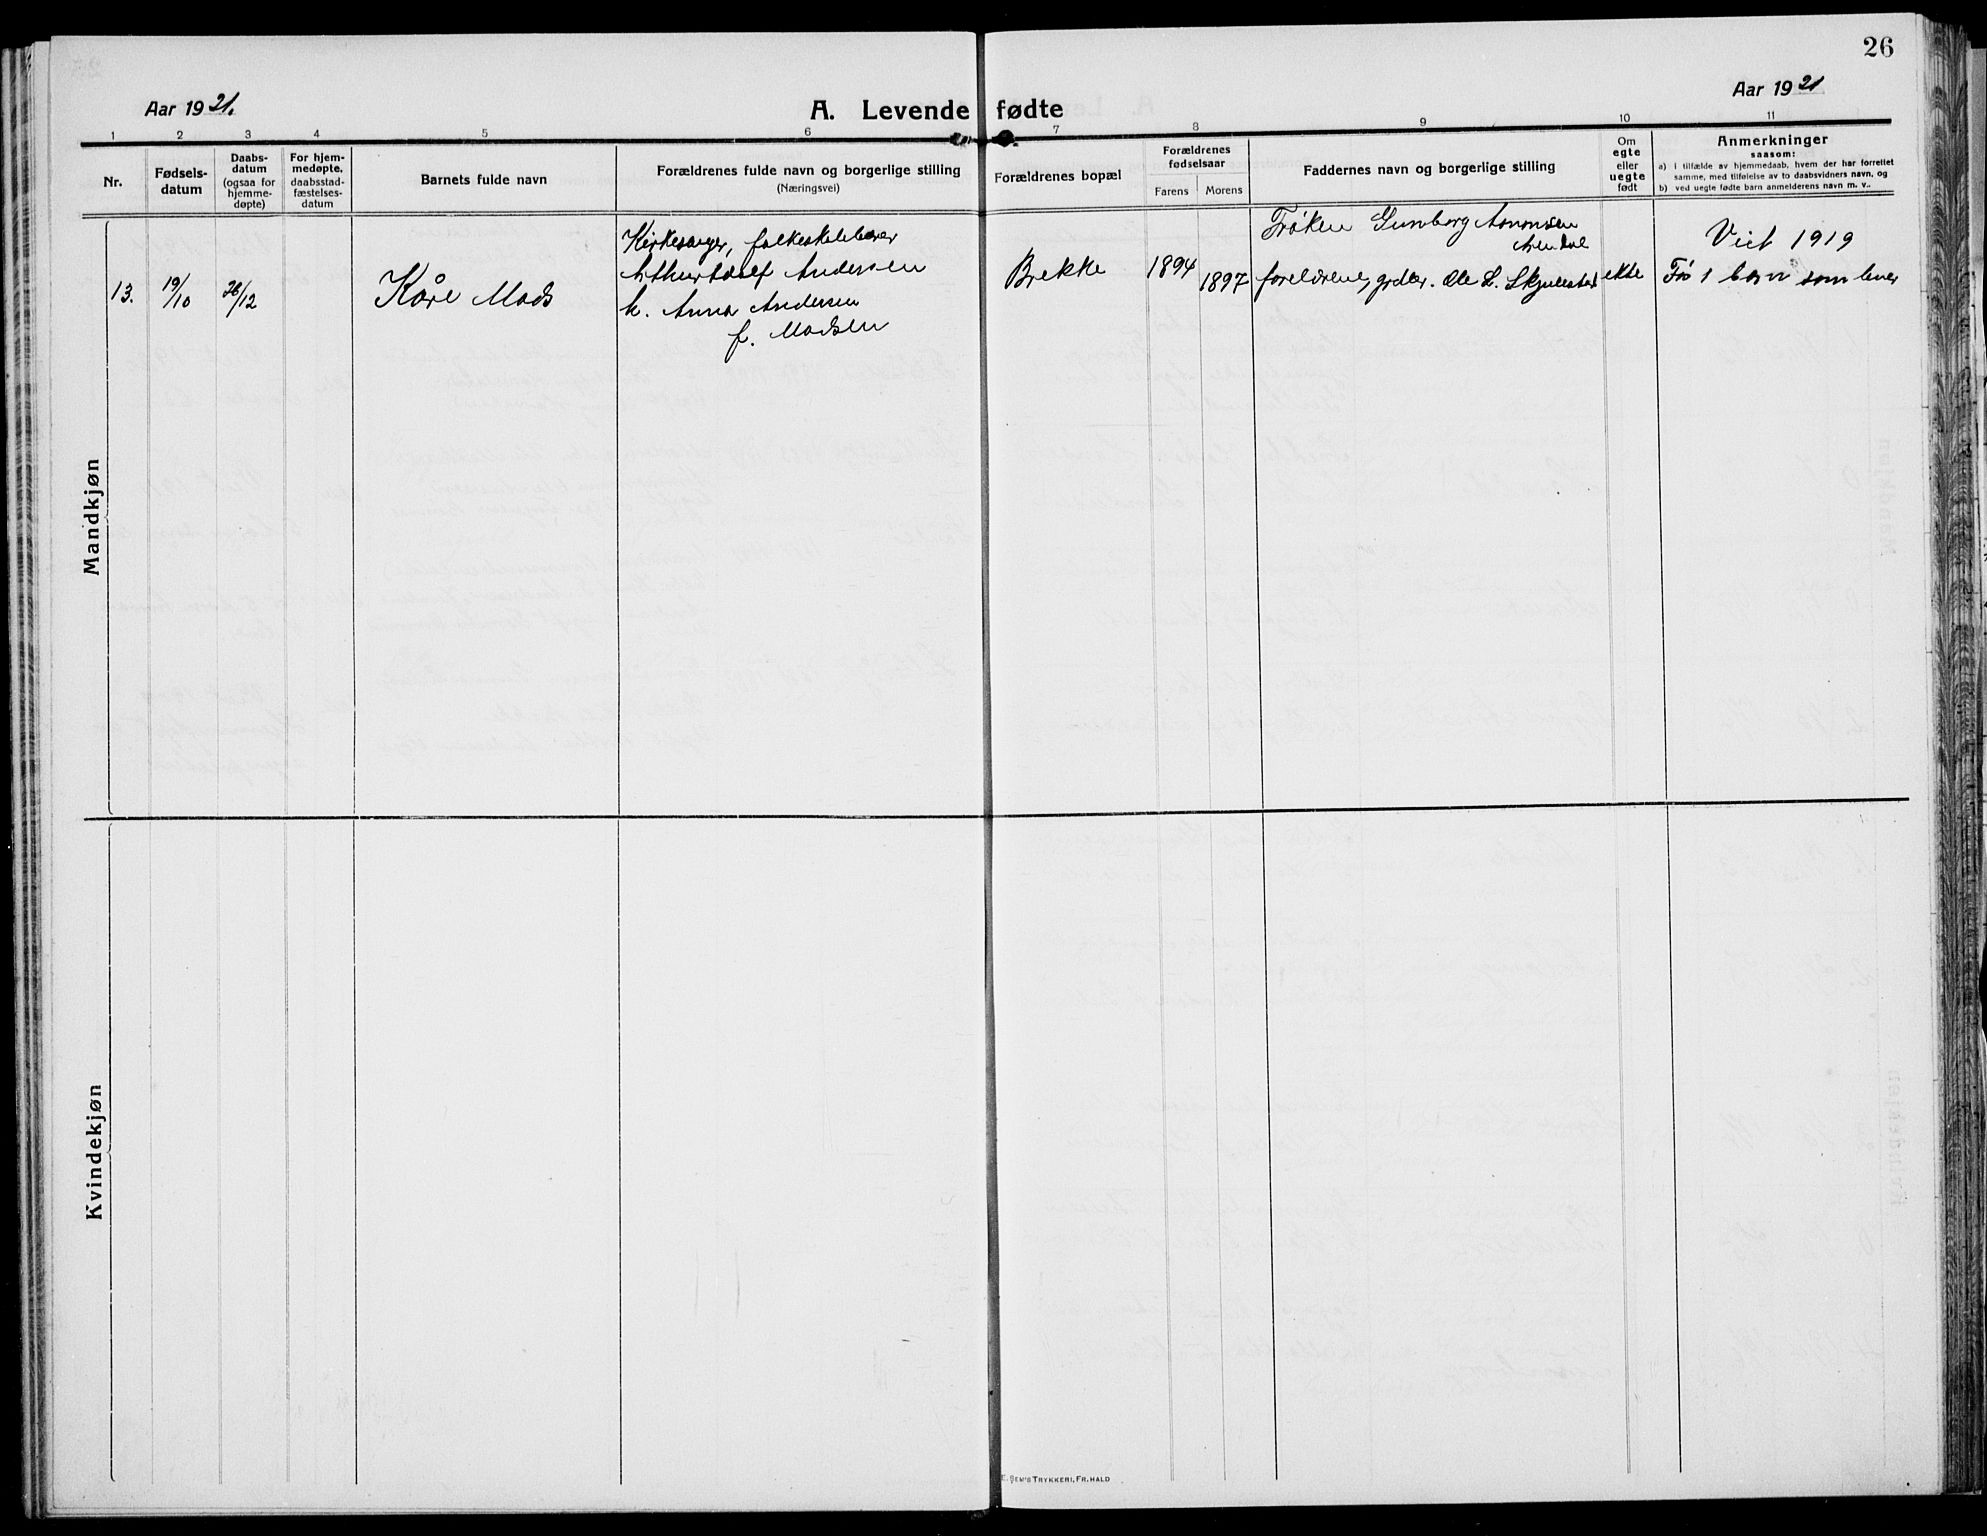 26
Aar 1921.
A. Levende fødte
Aar 1921
1 2 3 4 5 6 7 8 9 10 11
Nr.
Fødsels-
datum
Daabs-
datum
(ogsaa for
hjemme-
døpte)
For hjem-
medøpte,
daabsstad-
fæstelses-
datum
Barnets fulde navn
Forældrenes fulde navn og borgerlige stilling
(Næringsvei)
Forældrenes bopæl
Forældrenes
fødselsaar
Farens Morens
Faddernes navn og borgerlige stilling
Om
egte
eller
uegte
født
Anmerkninger
saasom:
a) i tilfælde av hjemmedaab, hvem der har forrettet
samme, med tilføielse av to daabsvidners navn, og
b) ved uegte fødte barn anmelderens navn m. v..
Mandkjøn
13.
19/10
26/12
Kåre Mads
Kirkesanger, folkeskolelærer
Arthur Adolf Andersen
h. Anna Andersen
f. Madsen
Brekke
1894
1897
Frøken Gunborg Asmonsen
Arendal
foreldrene, grdbr. Ole L.
ekte
Viet 1919
Før 1 barn som lever
Kvindekjøn
E. SEM'S TRYKKERI, FR. HALD